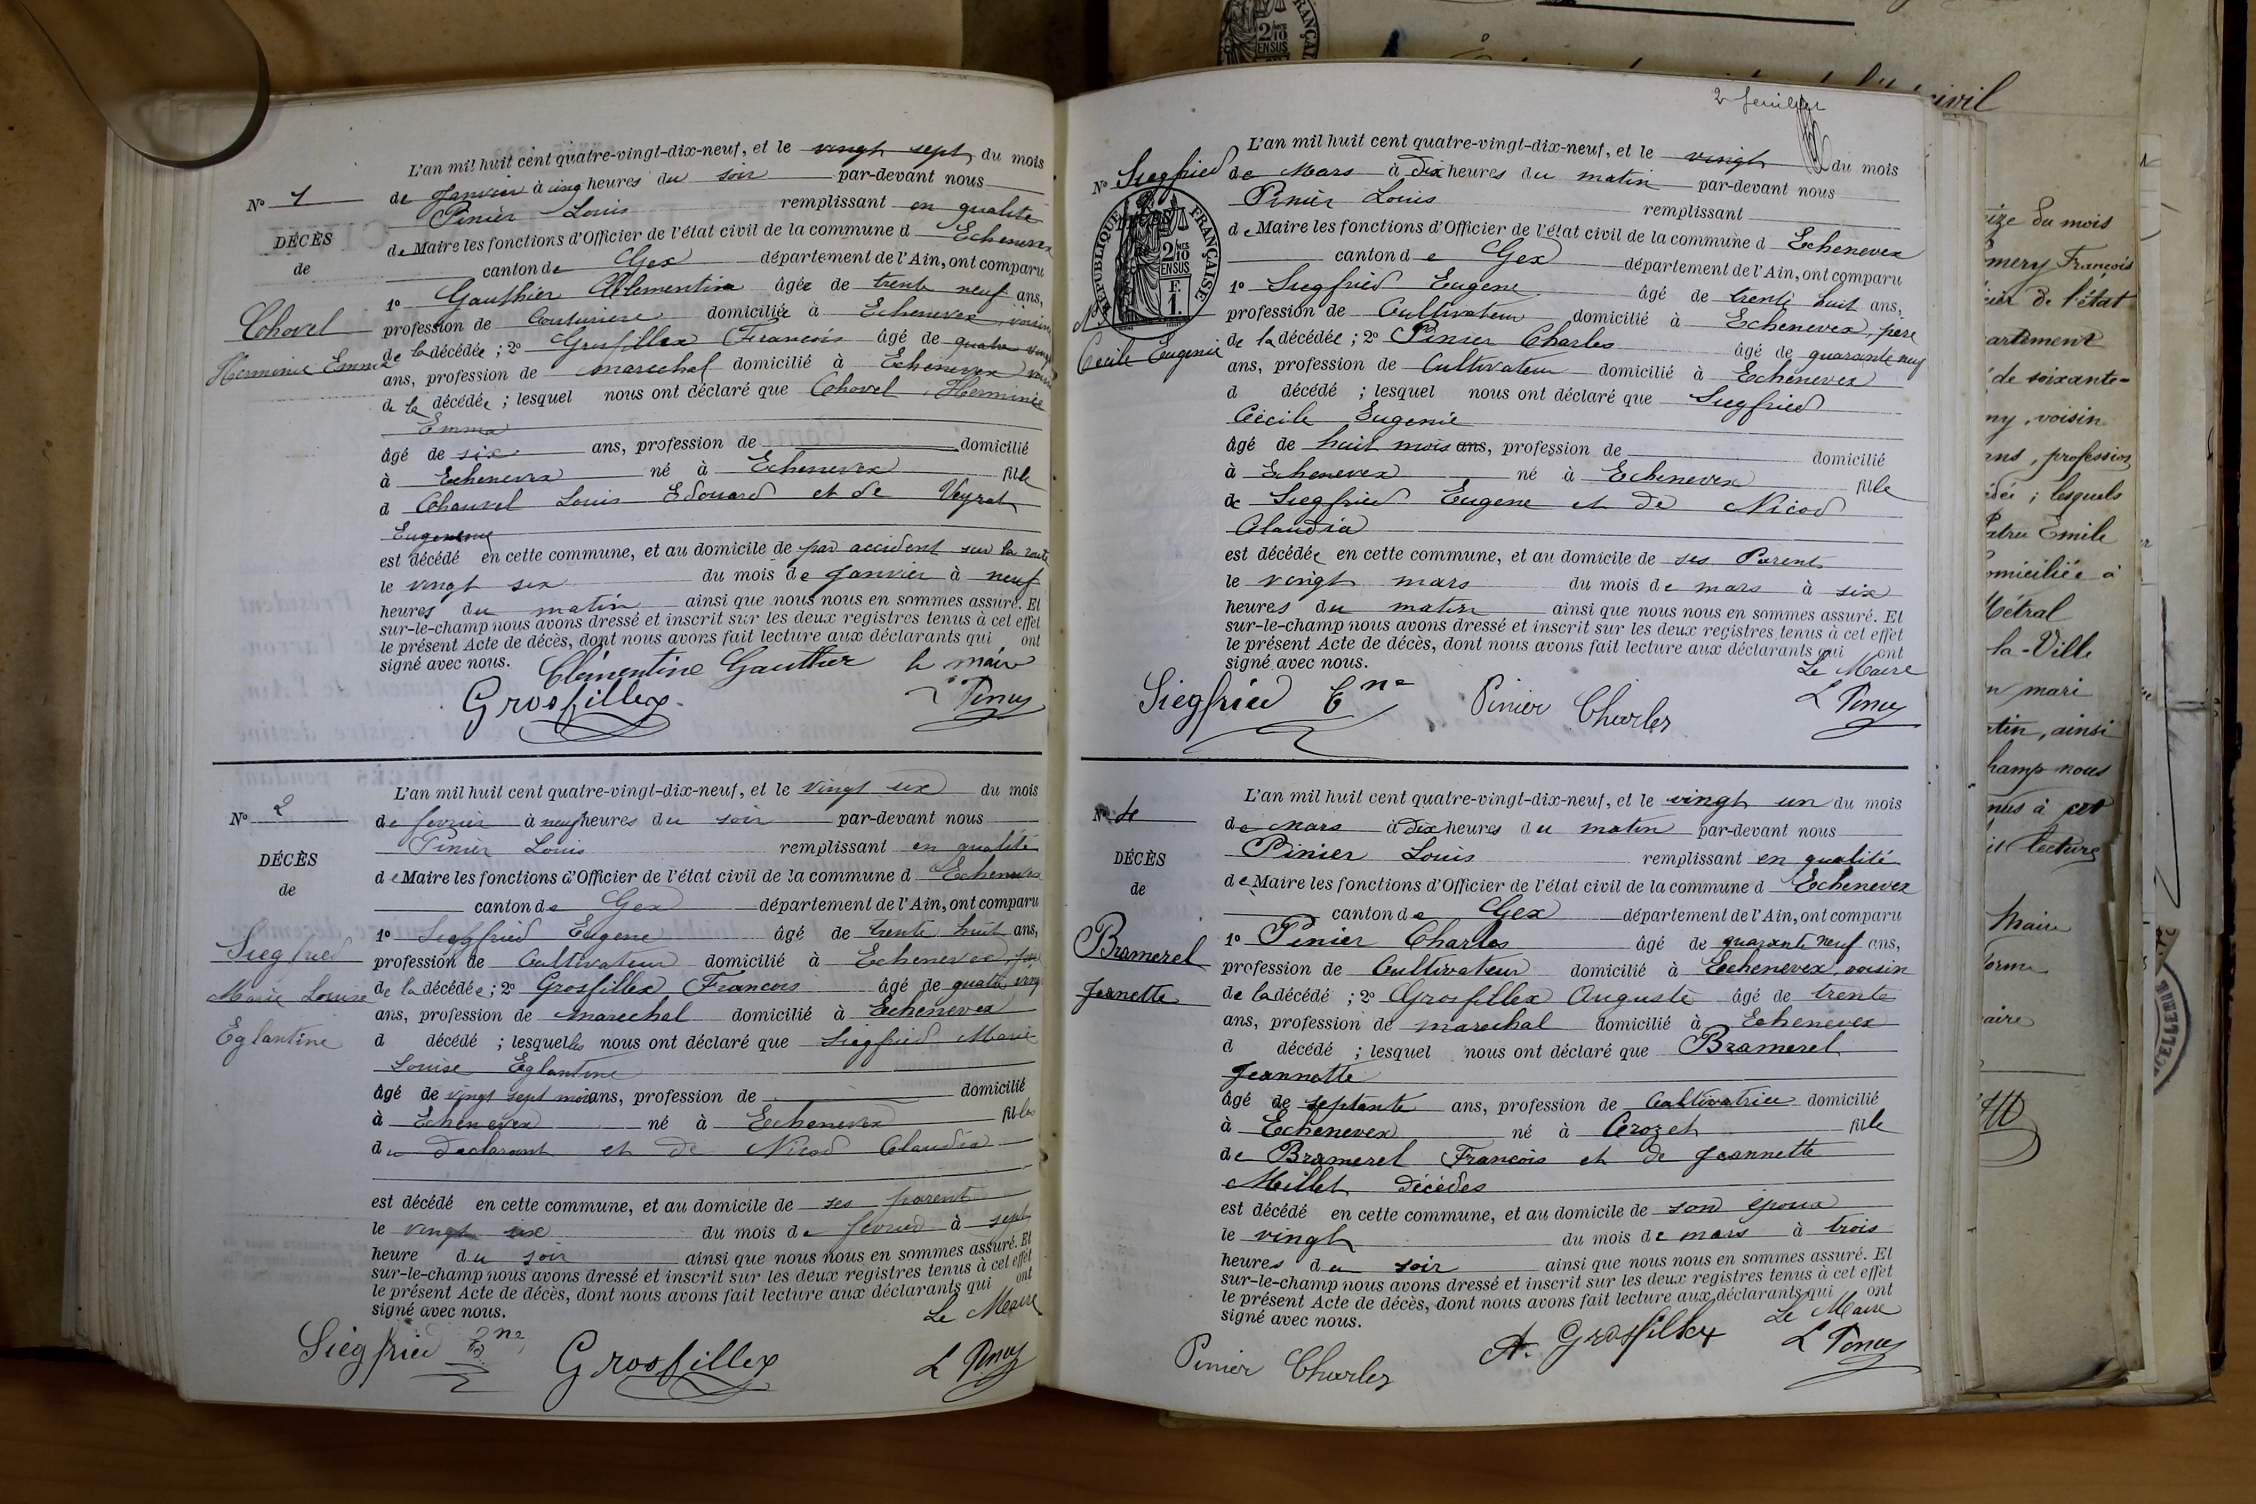 L'an mil huit cent quatre-vingt-dix-neuf, et le vingt sept du mois
de Janvier à cinq heures du soir par-devant nous
Pinier Louis remplissant en qualité
de Maire les fonctions d'Officier de l'état civil de la commune d Echenevex
canton de Gex département de l'Ain, ont comparu
1° Gauthier Clementine âgée de trente neuf ans,
profession de Couturiere domiciliée à Echenevex, voisine
de la décédée ; 2° Grosfillex Francois âgé de quatre vingt
ans, profession de marechal domicilié à Echenevex voisin
de la décédée ; lesquel nous ont déclaré que Chovel Herminie
Emma
âgé de six ans, profession de domicilié
à Echenevex né à Echenevex fille
d Chauvel Louis Edouard et de Veyrat
Eugenenie
est décédé en cette commune, et au domicile de par accident sur la route
le vingt six du mois de Janvier à neuf
heures du matin ainsi que nous nous en sommes assuré. Et
sur-le-champ nous avons dressé et inscrit sur les deux registres tenus à cet effet
le présent Acte de décès, dont nous avons fait lecture aux déclarants qui ont
signé avec nous.
Clémentine Gauthier le maire
Grosfillex L Pinier
N° 1
DÉCÈS
de
Chovel
Herminie Emma
L'an mil huit cent quatre-vingt-dix-neuf, et le vingt six du mois
de fevrier à neuf heures du soir par-devant nous
Pinier Louis remplissant en qualité
de Maire les fonctions d'Officier de l'état civil de la commune d Echenevex
canton de Gex département de l'Ain, ont comparu
1° Siegfried Eugene âgé de trente huit ans,
profession de Cultivateur domicilié à Echenevex, père
de la décédée ; 2° Grosfillex Francois âgé de quatre vingt
ans, profession de marechal domicilié à Echenevex
d décédé ; lesquelles nous ont déclaré que Siegfried Marie
Louise Eglantine
âgé de vingt sept mois ans, profession de domicilié
à Echenevex né à Echenevex filles
du declarant et de Nicod Claudia
est décédé en cette commune, et au domicile de ses parent
le vingt six du mois de fevrier à sept
heure du soir ainsi que nous nous en sommes assuré. Et
sur-le-champ nous avons dressé et inscrit sur les deux registres tenus à cet effet
le présent Acte de décès, dont nous avons fait lecture aux déclarants qui ont
signé avec nous.
Le Maire
Siegfried Ene Grosfillex L Pinier
N° 2
DÉCÈS
de
Siegfried
Marie Louise
Eglantine
2e feuillet
L'an mil huit cent quatre-vingt-dix-neuf, et le vingt du mois
de Mars à dix heures du matin par-devant nous
Pinier Louis remplissant
de Maire les fonctions d'Officier de l'état civil de la commune d Echenevex
canton de Gex département de l'Ain, ont comparu
1° Siegfried Eugene âgé de trente huit ans,
profession de Cultivateur domicilié à Echenevex, père
de la décédée ; 2° Pinier Charles âgé de quarante neuf
ans, profession de Cultivateur domicilié à Echenevex
d décédé ; lesquel nous ont déclaré que Siegfried
Cécile Eugenie
âgé de huit mois ans, profession de domicilié
à Echenevex né à Echenevex fille
de Siegfried Eugene et de Nicod
Claudia
est décédée en cette commune, et au domicile de ses Parent
le vingt mars du mois de mars à six
heures du matin ainsi que nous nous en sommes assuré. Et
sur-le-champ nous avons dressé et inscrit sur les deux registres tenus à cet effet
le présent Acte de décès, dont nous avons fait lecture aux déclarants qui ont
signé avec nous.
Le Maire
Siegfried Ene Pinier Charles L Pinier
N° Siegfried
RÉPUBLIQUE FRANÇAISE
2/10
EN SUS
F.
1.
Cécile Eugenie
L'an mil huit cent quatre-vingt-dix-neuf, et le vingt un du mois
de mars à dix heures du matin par-devant nous
Pinier Louis remplissant en qualité
de Maire les fonctions d'Officier de l'état civil de la commune d Echenevex
canton de Gex département de l'Ain, ont comparu
1° Pinier Charles âgé de quarante neuf ans,
profession de Cultivateur domicilié à Echenevex, voisin
de la décédé ; 2° Grosfillex Auguste âgé de trente
ans, profession de marechal domicilié à Echenevex
d décédé ; lesquel nous ont déclaré que Bramerel
Jeannette
âgé de septante ans, profession de Cultivatrice domicilié
à Echenevex né à Crozet fille
de Bramerel Francois et de Jeannette
Millet décédes
est décédé en cette commune, et au domicile de son époux
le vingt du mois de mars à trois
heures du soir ainsi que nous nous en sommes assuré. Et
sur-le-champ nous avons dressé et inscrit sur les deux registres tenus à cet effet
le présent Acte de décès, dont nous avons fait lecture aux déclarants qui ont
signé avec nous.
Le Maire
Pinier Charles A. Grosfillex L Pinier
N° 4
DÉCÈS
de
Bramerel
Jeannette
civil
du mois
François
de l'état
de soixante-
ny, voisin
profession
; lesquels
Emile
à
Métral
la-Ville
mari
ainsi
champ nous
à cet
lecture
Maire